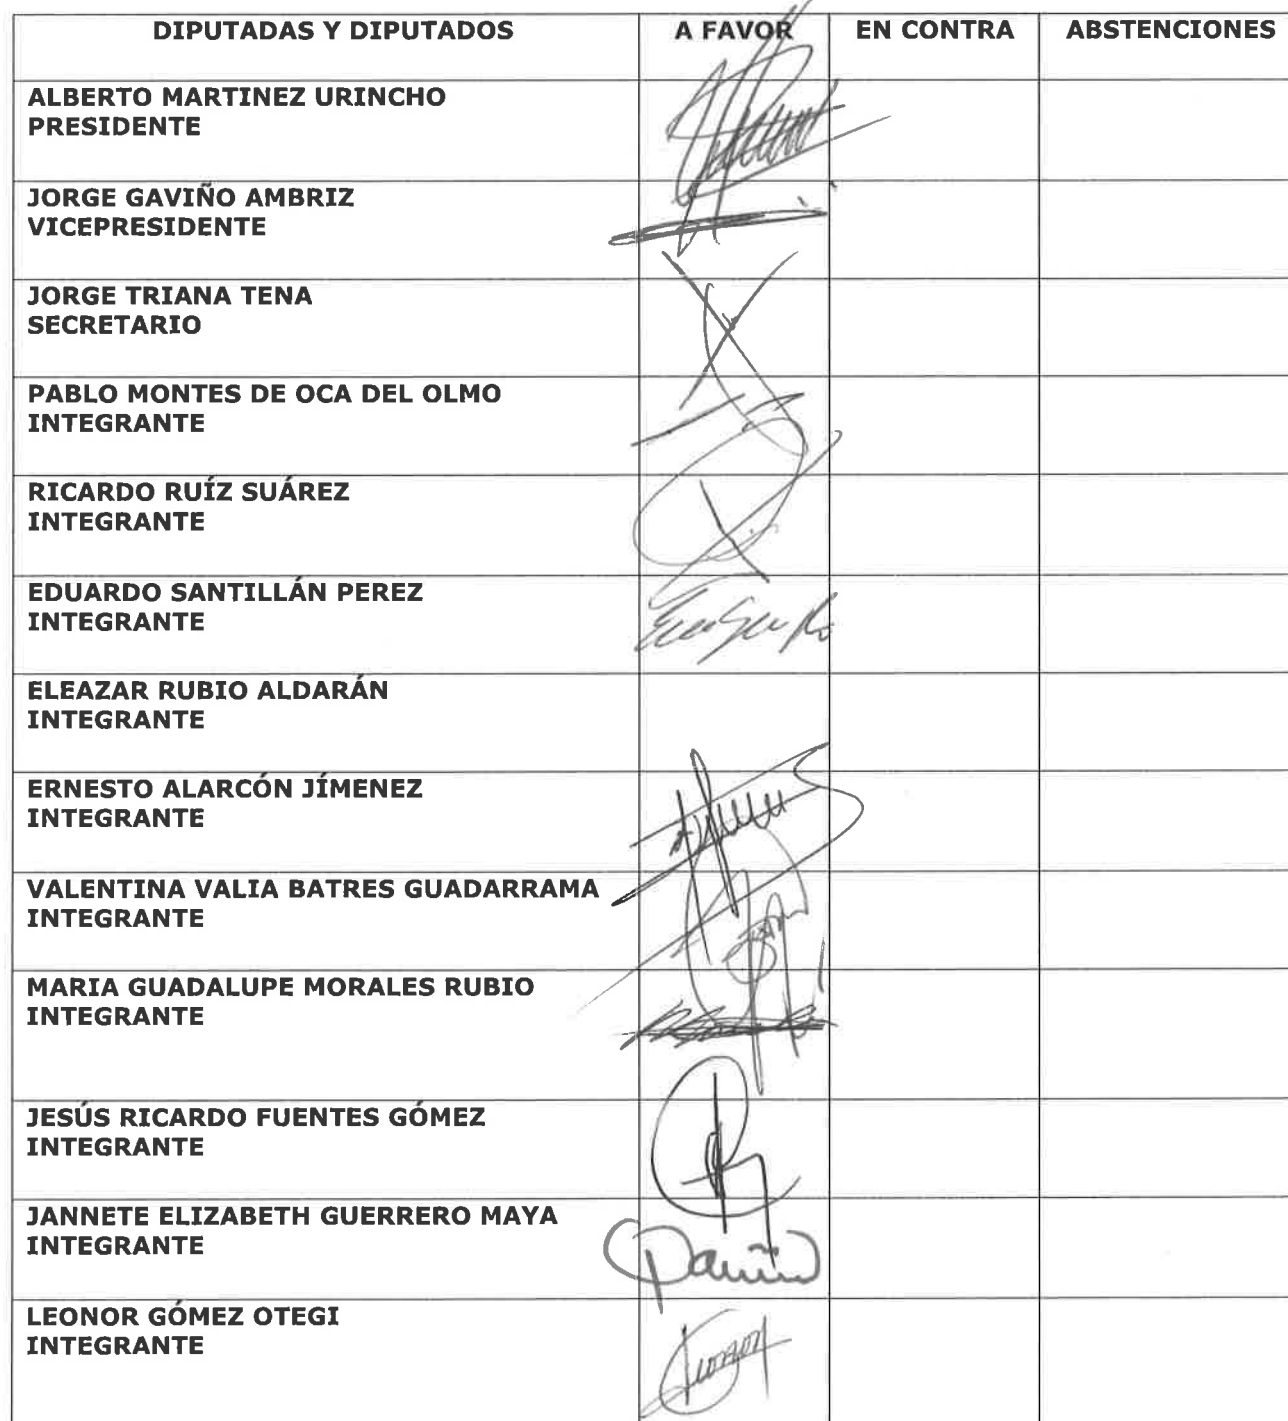 DIPUTADAS Y DIPUTADOS A FAVOR EN CONTRA ABSTENCIONES
ALBERTO MARTINEZ URINCHO
PRESIDENTE
JORGE GAVIÑO AMBRIZ
VICEPRESIDENTE
JORGE TRIANA TENA
SECRETARIO
PABLO MONTES DE OCA DEL OLMO
INTEGRANTE
RICARDO RUÍZ SUÁREZ
INTEGRANTE
EDUARDO SANTILLÁN PEREZ
INTEGRANTE
ELEAZAR RUBIO ALDARÁN
INTEGRANTE
ERNESTO ALARCÓN JÍMENEZ
INTEGRANTE
VALENTINA VALIA BATRES GUADARRAMA
INTEGRANTE
MARIA GUADALUPE MORALES RUBIO
INTEGRANTE
JESÚS RICARDO FUENTES GÓMEZ
INTEGRANTE
JANNETE ELIZABETH GUERRERO MAYA
INTEGRANTE
LEONOR GÓMEZ OTEGI
INTEGRANTE